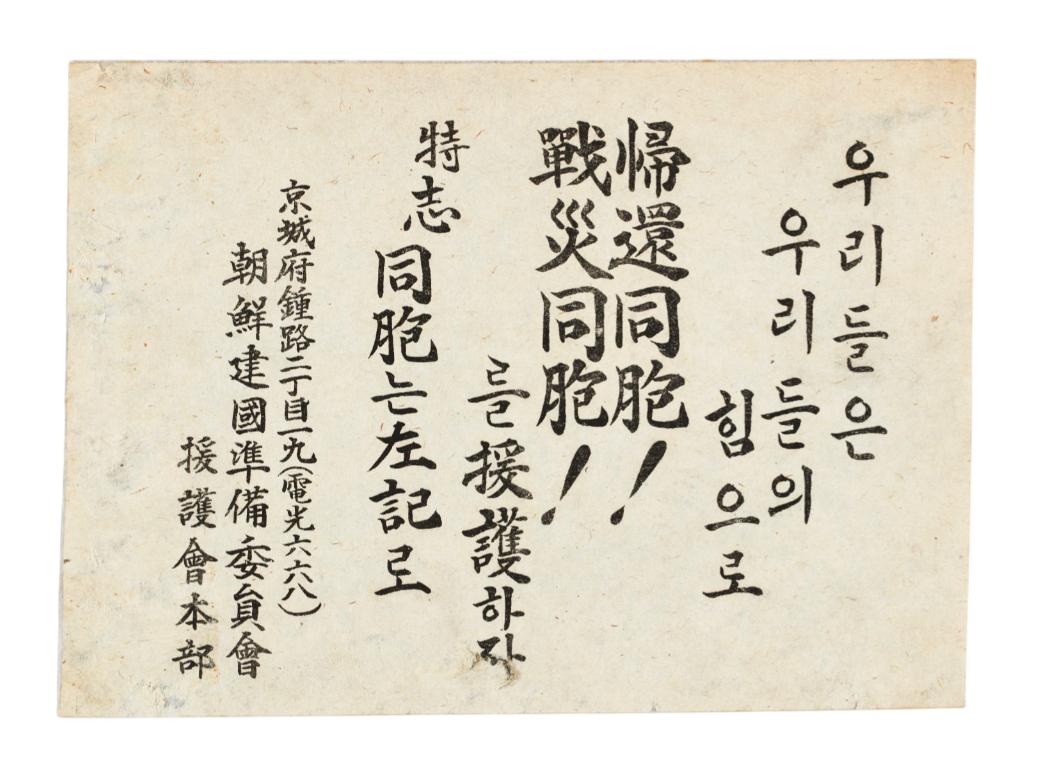 우리들은
우리들의
힘으로
帰還同胞!
戰災同胞!
를援護하자
特志
同胞는左記로
京城府鍾路二丁目一九(電光六六八)
朝鮮建國準備委員會
援護會本部